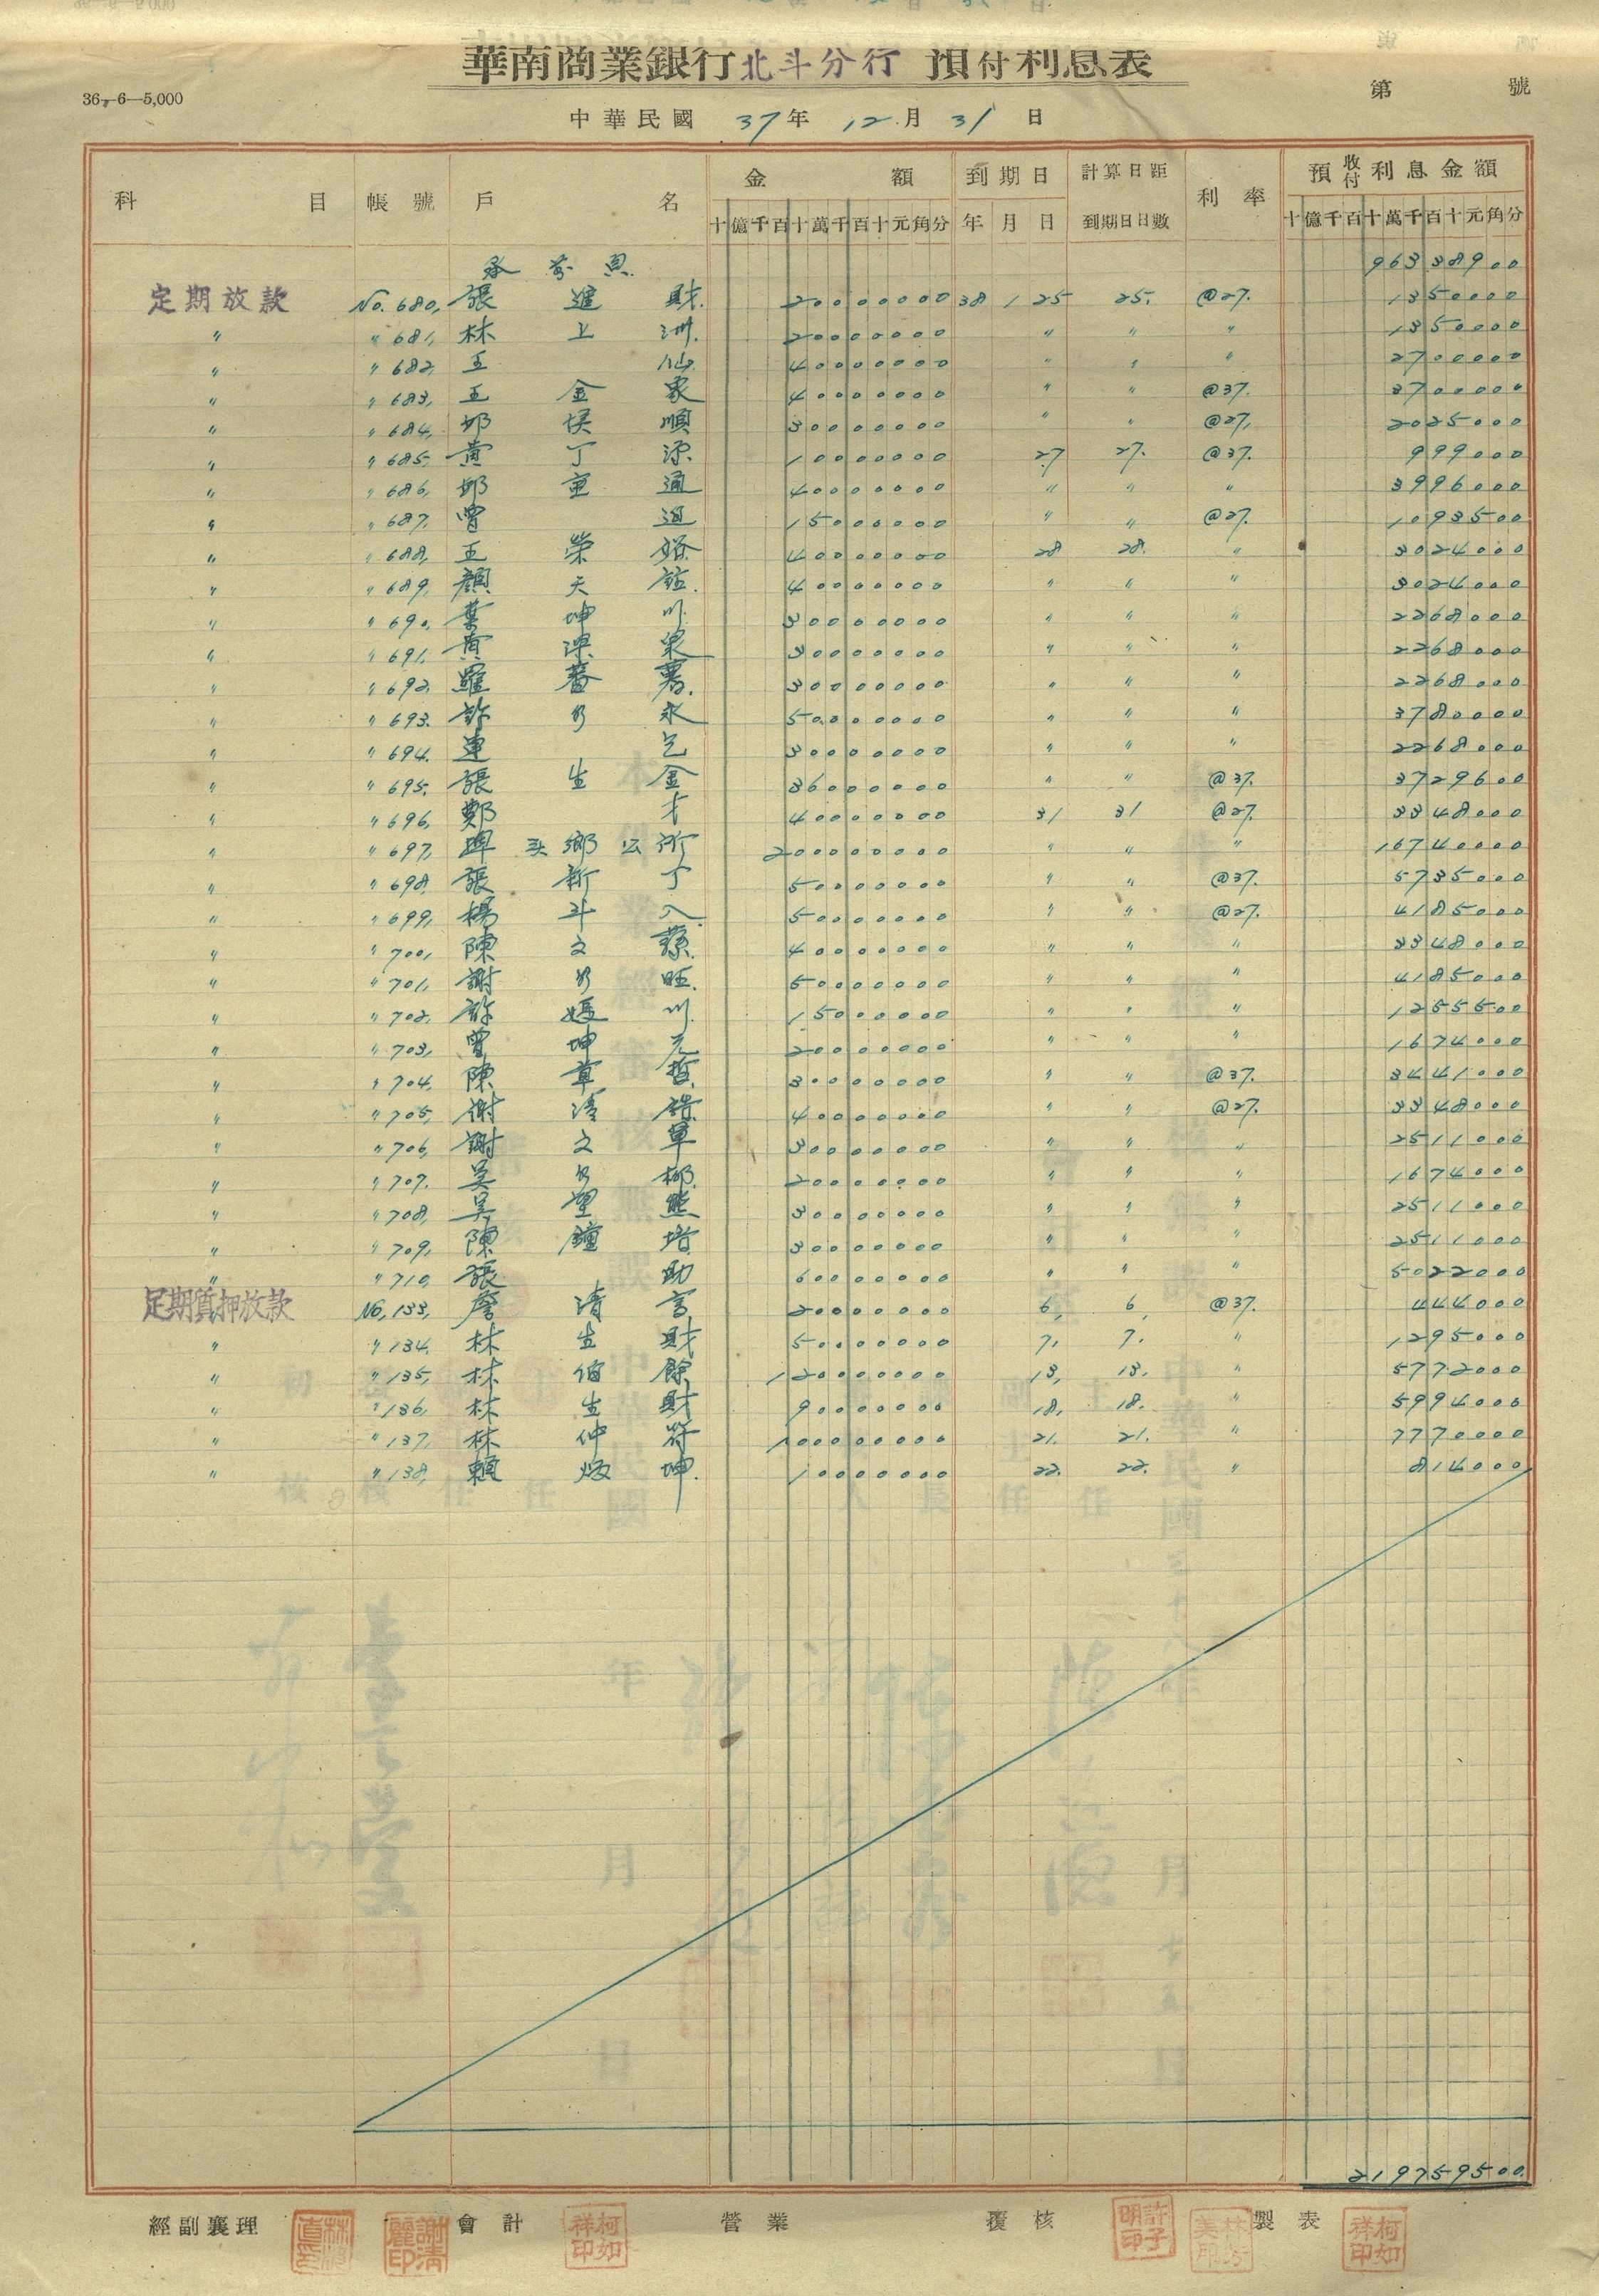 華南商業銀行北斗分行 預付利息表
36,-6-5,000
第 號
中華民國 37年 12月 31日
科目 帳號 戶名 金額 到期日 計算日距到期日日數 利率 預收付利息金額
十億千百十萬千百十元角分 年 月 日 十億千百十萬千百十元角分
承前頁 96338900
定期放款 No. 680, 張進財 20000000 38 1 25 25. @27. 1350000
〃 〃 681, 林上洲 20000000 〃 〃 〃 1350000
〃 〃 682, 王仙 40000000 〃 〃 〃 2700000
〃 〃 683, 王金象 40000000 〃 〃 @37. 3700000
〃 〃 684, 邱侯順 30000000 〃 〃 @27. 2025000
〃 〃 685, 黃丁源 10000000 27 27. @37. 999000
〃 〃 686, 邱重通 40000000 〃 〃 〃 3996000
〃 〃 687, 曾 15000000 〃 〃 @27. 1093500
〃 〃 688, 王榮 40000000 28 28. 〃 3024000
〃 〃 689, 顏天 40000000 〃 〃 〃 3024000
〃 〃 690, 葉坤川 30000000 〃 〃 〃 2268000
〃 〃 691, 黃深 30000000 〃 〃 〃 2268000
〃 〃 692, 羅蕃薯 30000000 〃 〃 〃 2268000
〃 〃 693. 許永 50000000 〃 〃 〃 3780000
〃 〃 694. 連 30000000 〃 〃 〃 2268000
〃 〃 695. 張生金 36000000 〃 〃 @37. 3729600
〃 〃 696, 鄭才 40000000 31 31 @27. 3348000
〃 〃 697, 埤头鄉公所 200000000 〃 〃 〃 16740000
〃 〃 698, 張新丁 50000000 〃 〃 @37. 5735000
〃 〃 699, 楊斗入 50000000 〃 〃 @27. 4185000
〃 〃 700, 陳文 40000000 〃 〃 〃 3348000
〃 〃 701, 謝旺 50000000 〃 〃 〃 4185000
〃 〃 702, 許媽川 15000000 〃 〃 〃 1255500
〃 〃 703, 曾坤元 20000000 〃 〃 〃 1674000
〃 〃 704, 陳草哲 30000000 〃 〃 @37. 3441000
〃 〃 705, 謝清 40000000 〃 〃 @27. 3348000
〃 〃 706, 謝文草 30000000 〃 〃 〃 2511000
〃 〃 707. 吳 20000000 〃 〃 〃 1674000
〃 〃 708, 吳望熊 30000000 〃 〃 〃 2511000
〃 〃 709, 陳鐘培 30000000 〃 〃 〃 2511000
〃 〃 710, 張助 60000000 〃 〃 〃 5022000
定期質押放款 No, 133, 詹清言 20000000 6, 6, @37. 444000
〃 〃 134. 林生財 50000000 7, 7. 〃 1295000
〃 〃 135, 林伯餘 120000000 13, 13. 〃 5772000
〃 〃 136, 林生財 90000000 18, 18. 〃 5994000
〃 〃 137, 林仲符 100000000 21. 21. 〃 7770000
〃 〃 138, 賴坤 10000000 22. 22. 〃 814000
219759500
經副襄理 會計 營業 覆核 製表
謝清 印 柯如祥印 許子明印 柯如祥印